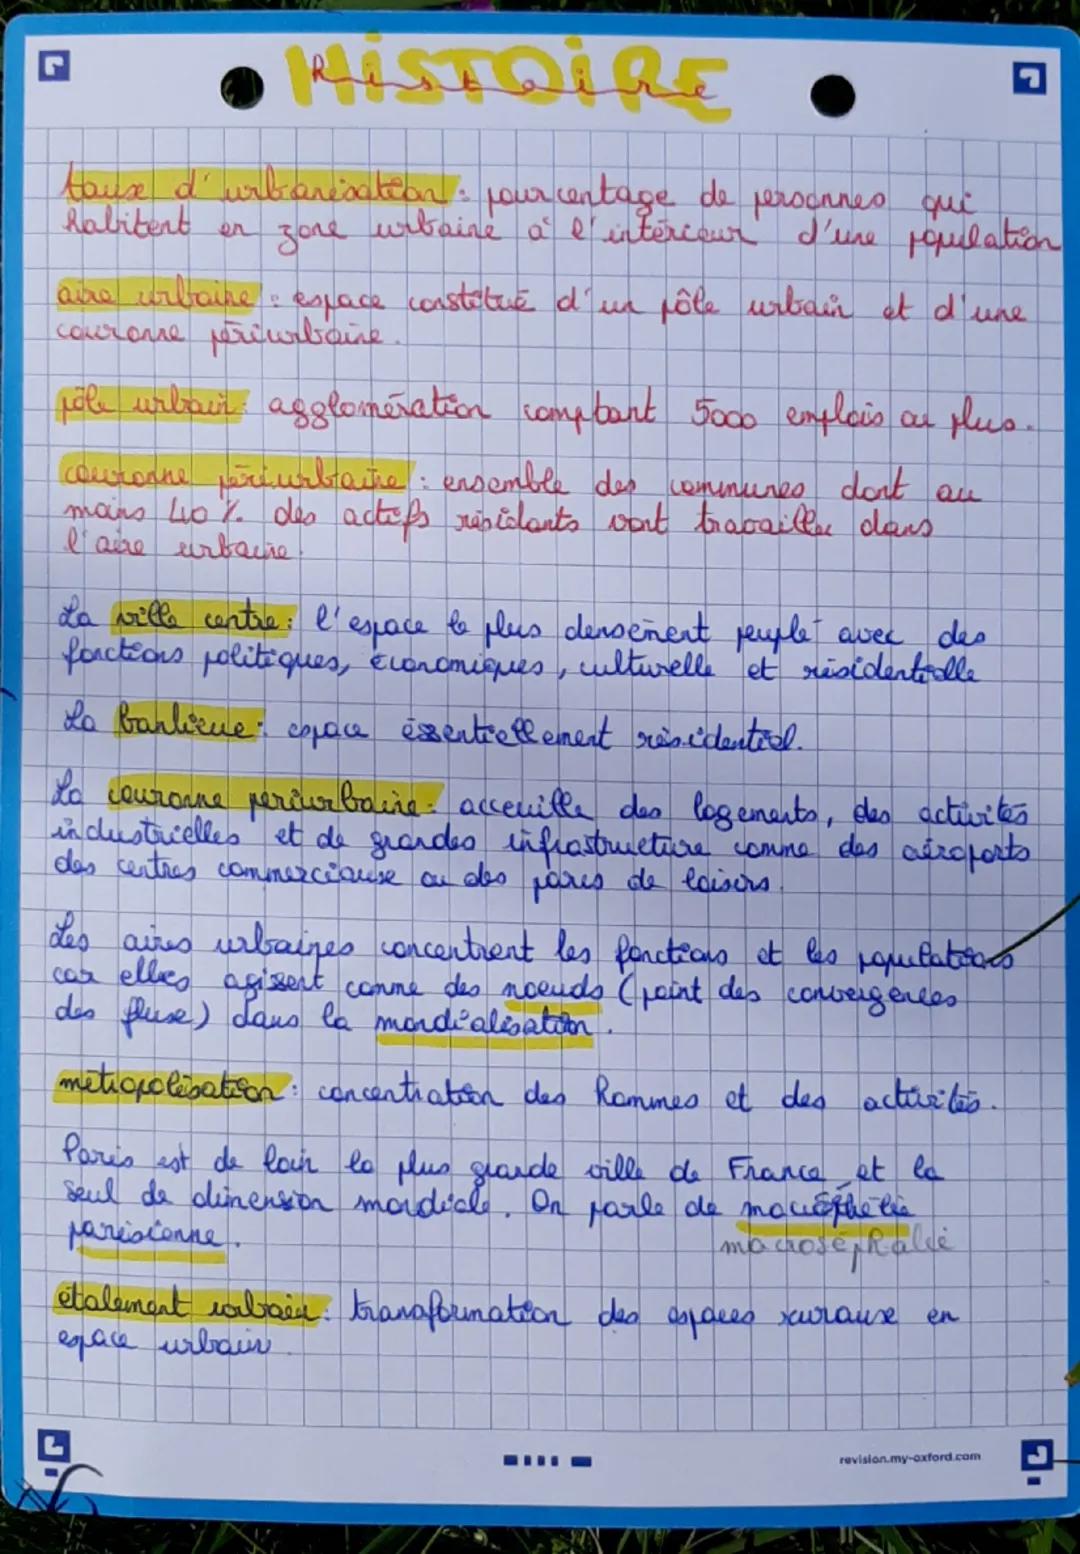 HiSTOiRE
Histoire
taux d'urbanisation : pourcentage de personnes qui
habitent en zone urbaine à l'intérieur d'une population
aire urbaine : espace constitué d'un pôle urbain et d'une
couronne périurbaine.
pôle urbain : agglomération comptant 5000 emplois ou plus.
couronne périurbaine : ensemble des communes dont au
moins 40 % des actifs résidants vont travailler dans
l'aire urbaine.
La ville centre : l'espace le plus densement peuplé avec des
fonctions politiques, économiques, culturelle et résidentielle
La banlieue : espace éssentiellement résidentiel.
La couronne periurbaine : acceuille des logements, des activités
industrielles et de grandes infrastructure comme des aéroports
des centres commerciaux ou des parcs de loisirs.
Les aires urbaines concentrent les fonctions et les populations
car elles agissent comme des noeuds (point des convergences
des flux) dans la mondialisation.
métropolisation : concentration des hommes et des activités.
Paris est de loin la plus grande ville de France et la
seul de dimension mondiale. On parle de
parisienne.
macroséphalie
étalement urbain : transformation des espaces ruraux en
espace urbain
revision.my-oxford.com